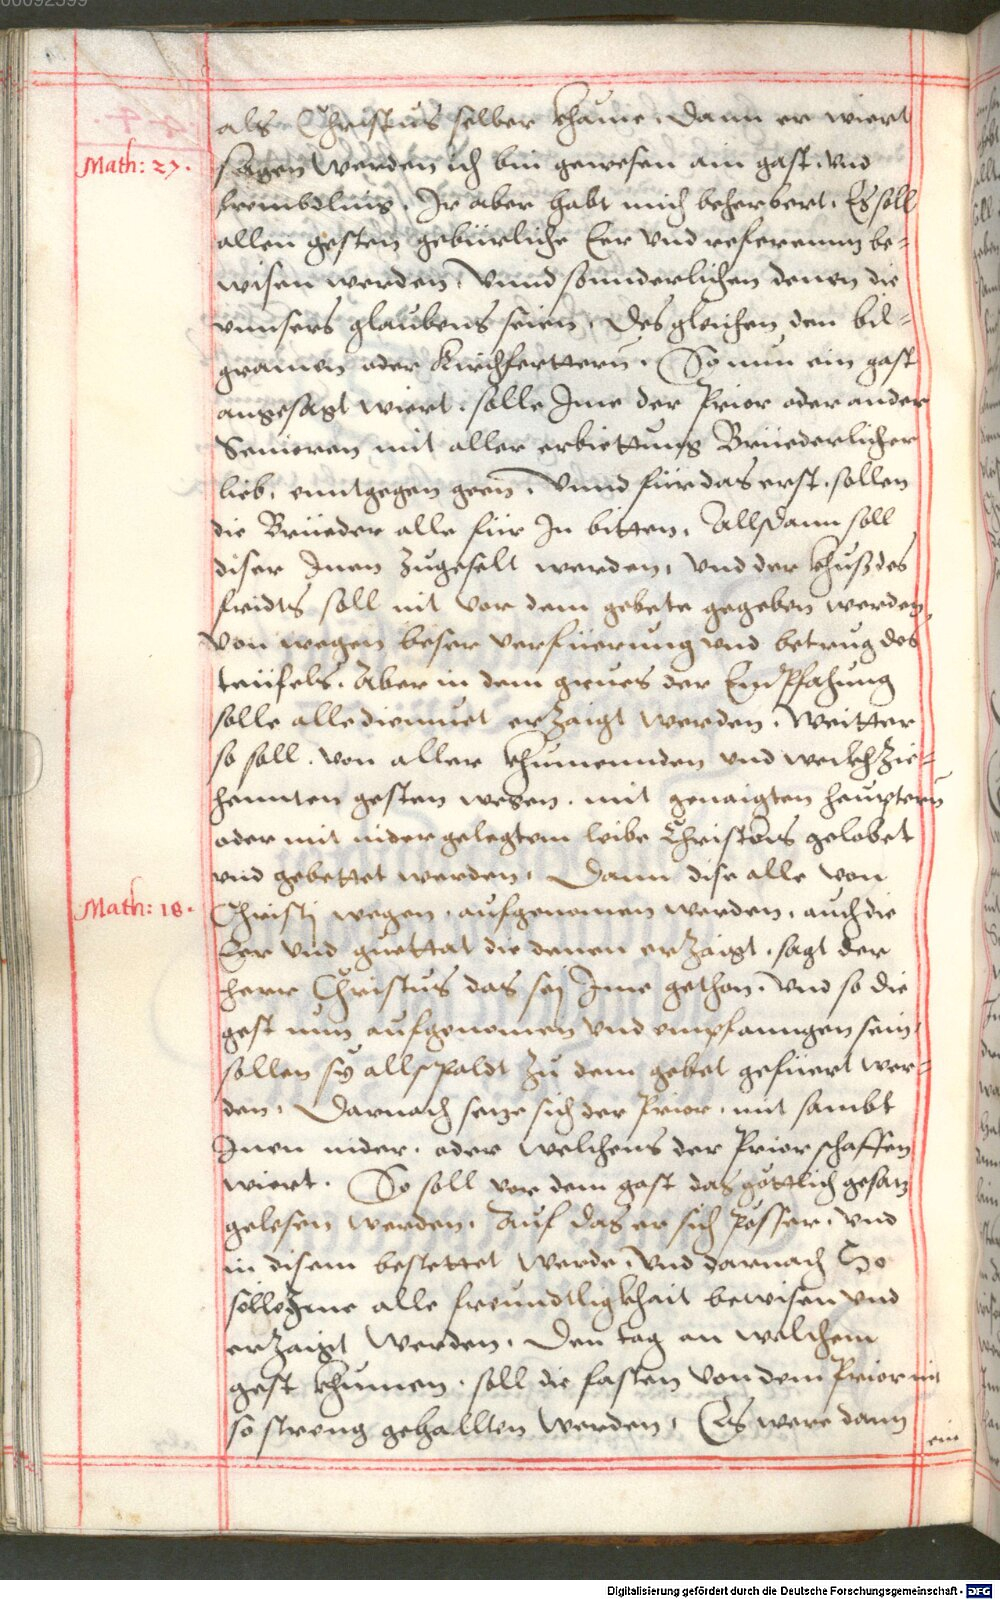 00092599
als Christus selber khäme. Dann er wiert
Math: 27.
sagen werden ich bin gewesen ain gast. vnd
frembdling. Ir aber habt mich beherbert. Es soll
allen gesten gebürliche Eer vnd referenntz be=
wisen werden, Vnnd sonnderlichen denen die
vnnsers glaubens seien, Desgleichen den bil=
gramen oder Kirchferttern. So nun ein gast
angesagt wiert. solle Ime der Prior oder ander
Senioren mit aller erbiettung Brüederlicher
lieb, enntgegen geen. Vnnd für das erst. sollen
die Brüeder alle für In bitten, Allsdann soll
diser Inen zugeselt werden, vnd der khuß des
fridts soll nit vor dem gebete gegeben werden,
von wegen beser verfüerung vnd betrug des
teüfels. Aber in dem grues der Empfahung
solle alle diemuet erzaigt werden. Weitter
so soll. von aller khumennden vnd weckhzie=
hennten gesten wegen. mit genaigten heuptern
oder mit nider gelegtem leibe Christus gelobet
vnd gebettet werden. Dann dise alle von
Math: 18.
Christj wegen. aufgenomen werden. auch die
Eer vnd guettat die denen erzaigt. sagt der
herr Christus das sej Ime gethon. Vnd so die
gest nun aufgenomen vnd empfanngen sein.
sollen sy allspaldt zu dem gebet gefüert wer=
den. Darnach setze sich der Prior. mit sambt
Inen nider. oder welchens der Prior schaffen
wiert. So soll vor dem gast das göttlich gesatz
gelesen werden. Auf das er sich pesser. vnd
in disem bestettet werde. Vnd darnach So
solle Ime alle freundtligkhait bewisen vnd
erzaigt werden. Den tag an welchem
gest khumen. soll die fasten von dem Prior nit
so streng gehallten werden, Es were dann
ein
Digitalisierung gefördert durch die Deutsche Forschungsgemeinschaft - DFG